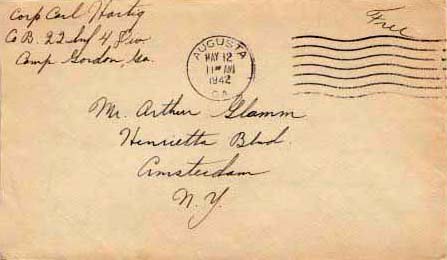 Corp Carl Hartig
Co B. 22 Inf 4 Div
Camp Gordon, Ga.
Free
AUGUSTA
MAY 12
11 AM
1942
GA.
Mr. Arthur Glamm
Henrietta Blvd.
Amsterdam
N.Y.